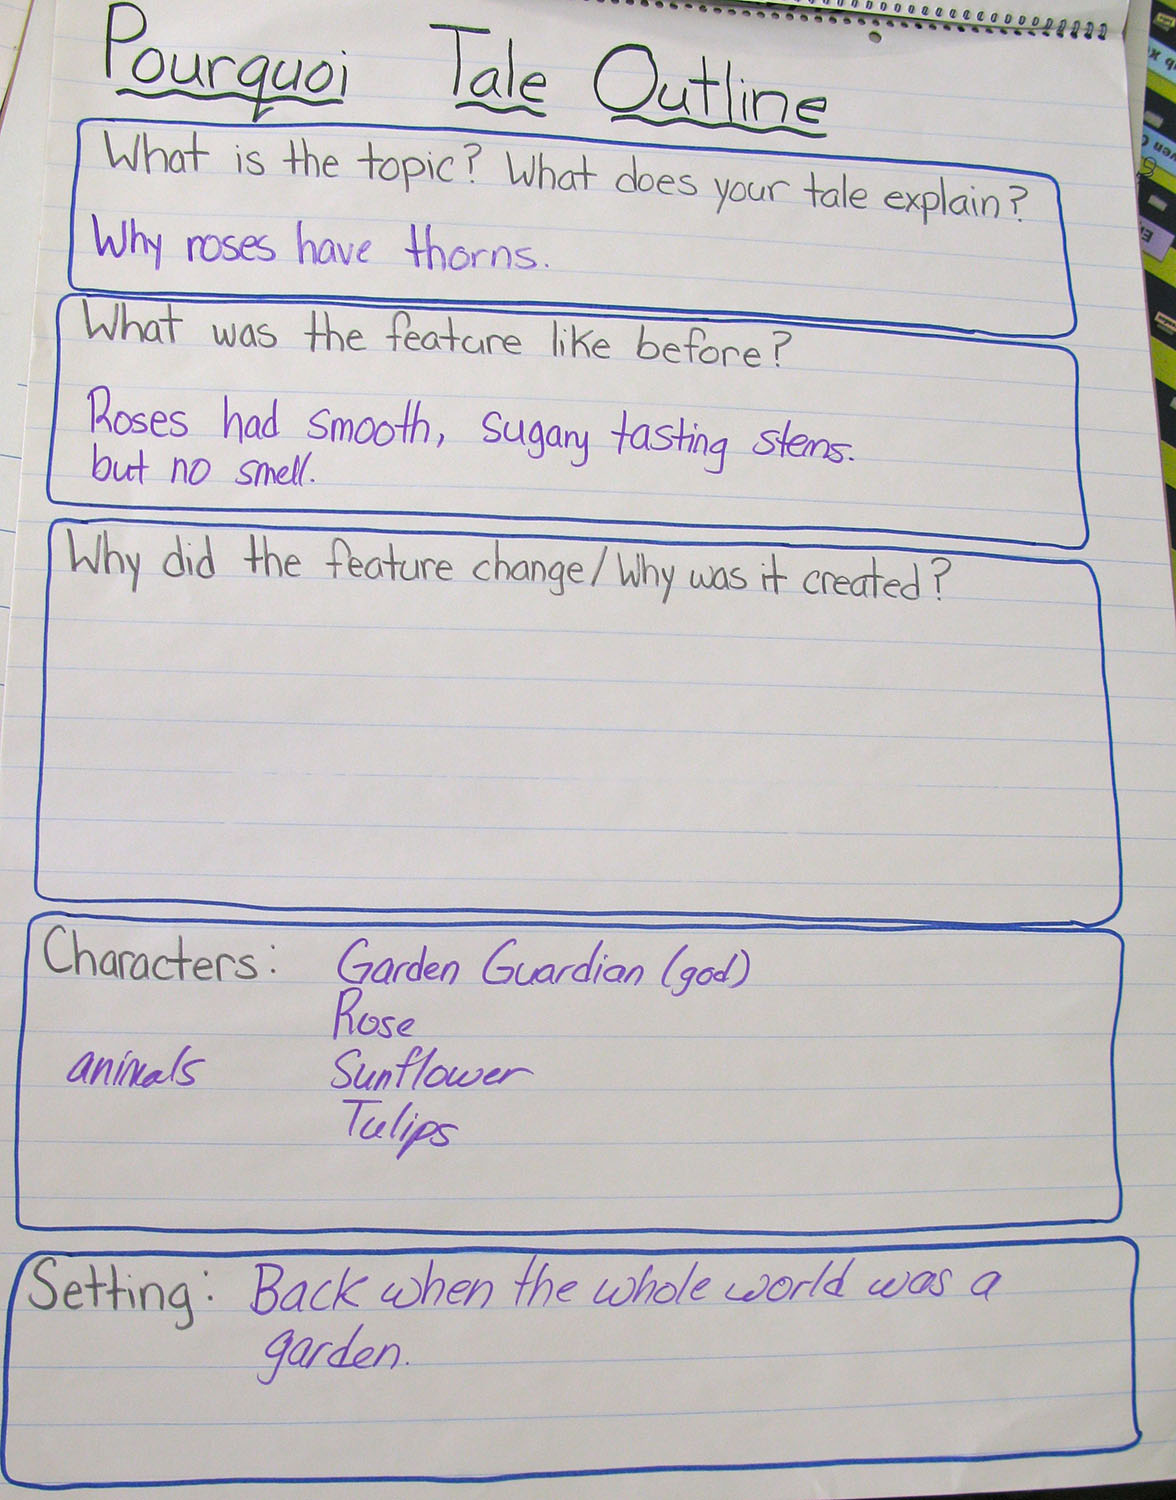 Pourquoi Tale Outline
What is the topic? What does your tale explain?
Why roses have thorns.
What was the feature like before?
Roses had smooth, sugary tasting stems.
but no smell.
Why did the feature change/Why was it created?
Characters: Garden Guardian (god)
Rose
animals Sunflower
Tulips
Setting: Back when the whole world was a
garden.